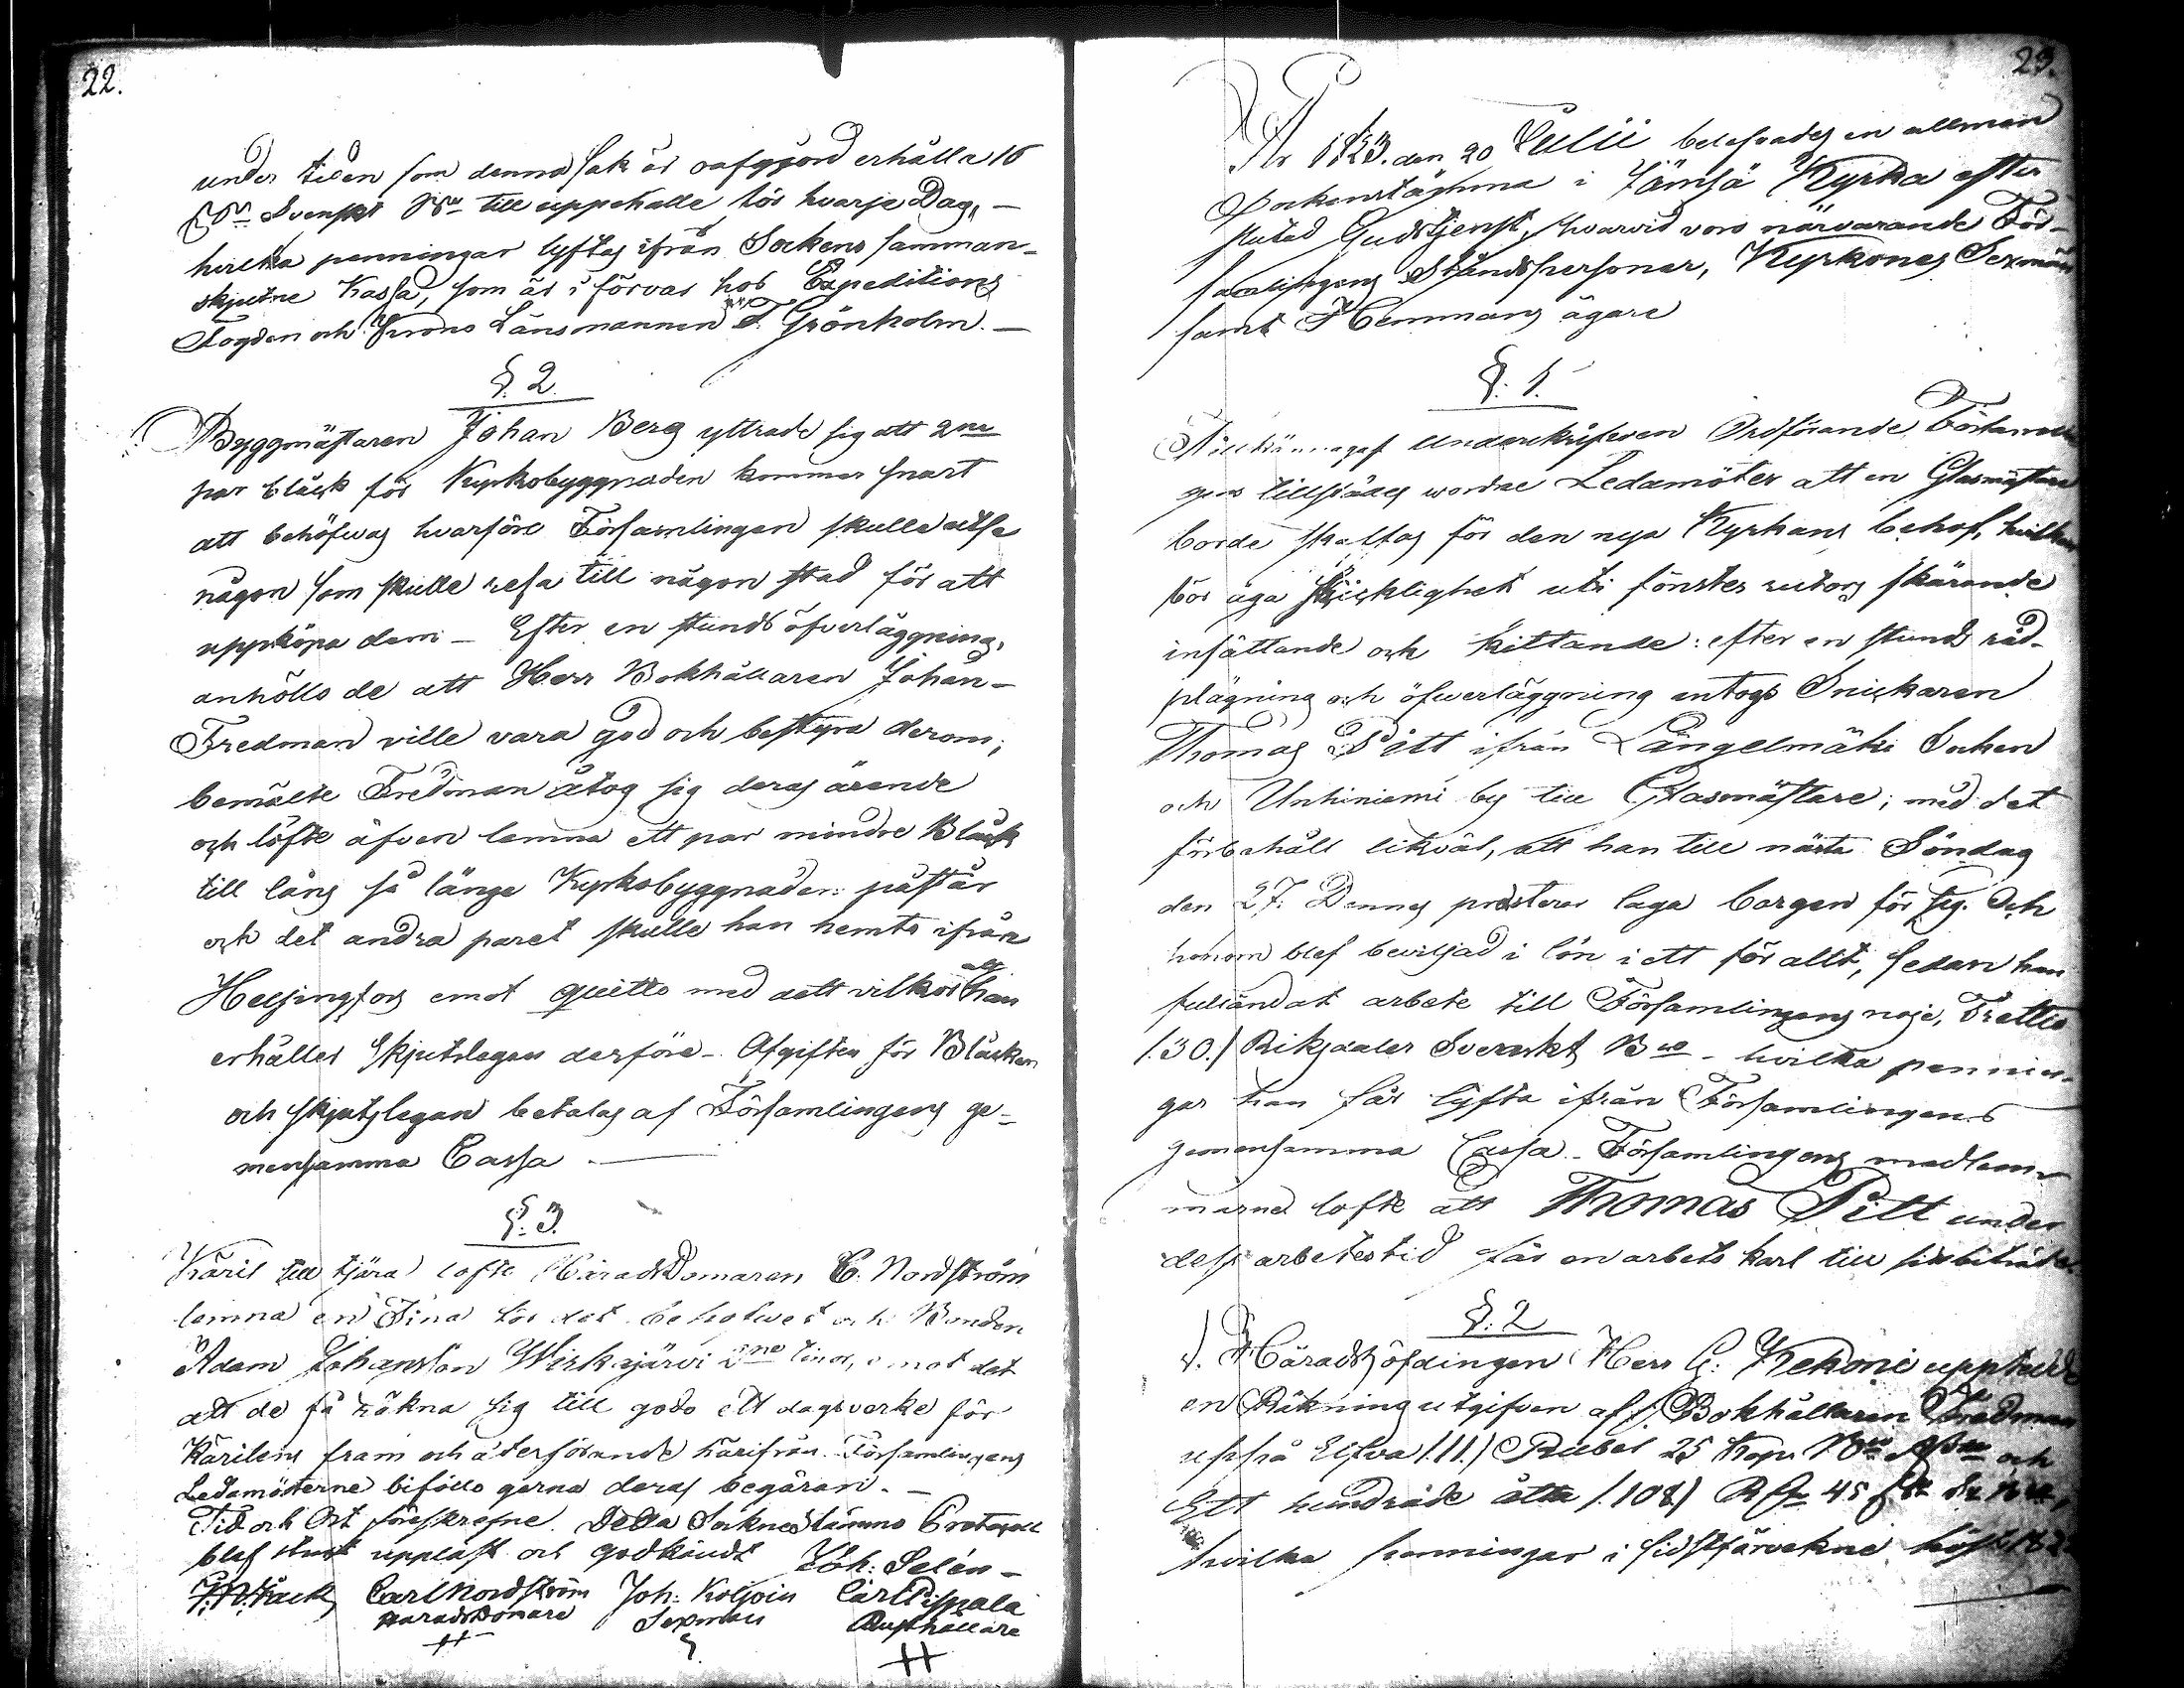 22.
under tiden som denna sak är oafgjord erhålla 16
Svenskt till uppehälle för hvarje Dag, —
hvilka penningar lyftas ifrån Sockens samman-
skjutne Kassa, som är i förvar hos Expeditions
Fogden och Krono Länsmannen T. Grönholm. —
§. 2.
Byggmästaren Johan Berg yttrade sig att 2ne
par bläck för Kyrkobyggnaden kommer snart
att behöfwas hvarföre Församlingen skulle utse
någon som skulle resa till någon stad för att
uppköpa dem — Efter en stunds öfverläggning,
anhöllo de att Herr Bokhållaren Johan —
Fredman ville vara god och bestyra derom;
bemälte Fredman åtog sig deras ärende
och löfte äfven lemna ett par mindre Bläck
till låns så länge Kyrkobyggnaden påstår
och det andra paret skulle han hemta ifrån
Helsingfors emot quitto med dett vilkor att han
erhåller skjutslegan derföre — Afgiften för Bläcken
och skjutslegan betalas af Församlingens ge-
mensamma Cassa —
§. 3.
Käril till tjära lofte HäradsDomaren C. Nordström
lemna en Tina för det behofwet och Bonden
Adam Johansson Wirkajärvi 2ne tinor, emot det
att de få räkna sig till godo ett dagsverke för
Kärilens fram och återförande härifrån. Församlingens
Ledamöterne biföllo gerna deras begäran. —
Tid och Ort föreskrefne. Detta Socknestämmo Protocoll
blef straxt uppläst och godkändt Joh: Selén —
Carl Nordström Joh: Koljoin Carl Pispala
HäradsDomare Sexman Rusthållare
23.
År 1823. den 20 Julii belefvades en allmän
Sockenstämma i Jämsä Kyrka efter
slutad Gudstjenst, hvarvid voro närvarande För-
samlingens Ståndspersoner, Kyrkones Sexmän
samt Hemmans ägare
§. 1.
Tillkännagaf Underskrifven Ordförande Församlin-
gens tillstädes wordne Ledamöter att en Glasmästare
borde skaffas för den nya Kyrkans behof, hvilken
bör äga skicklighet uti fönster rutors skärande
insättande och kittande: efter en stunds råd-
plägning och öfwerläggning antogs Snickaren
Thomas Pitt ifrån Längelmäki Socken
och Unhiniemi by till Glasmästare; med det
förbehåll likväl, att han till nästa Söndag
den 27. Dennes presterar laga borgen för sig. Och
honom blef beviljad i lön i ett för allt, sedan han
fulländat arbete till Församlingens nöje, Trettio
/.30./ Riksdaler Svenskt Bco — hvilka pennin-
gar han får lyfta ifrån Församlingens
gemensamma Cassa — Församlingens medlem-
marne lofte att Thomas Pitt under
dess arbetestid får en arbets karl till sitt biträde
§. 2
Häradshöfdingen Herr G. Kekoni uppteedde
en Räkning utgifven af Bokhållaren Fredman
uppå Elfva /.11./ Rubel 25 Kop: och
Ett hundrade åtta /.108/ 45
hvilka penningar i sidstförvekne höst 182